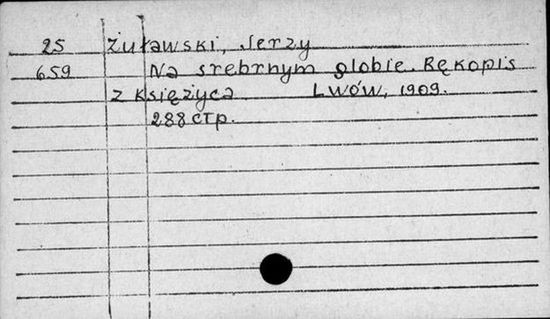 25 Żuławski, Jerzy
659 Na srebrnym globie. Rękopis
z księżyca Lwów, 1909.
288 стр.